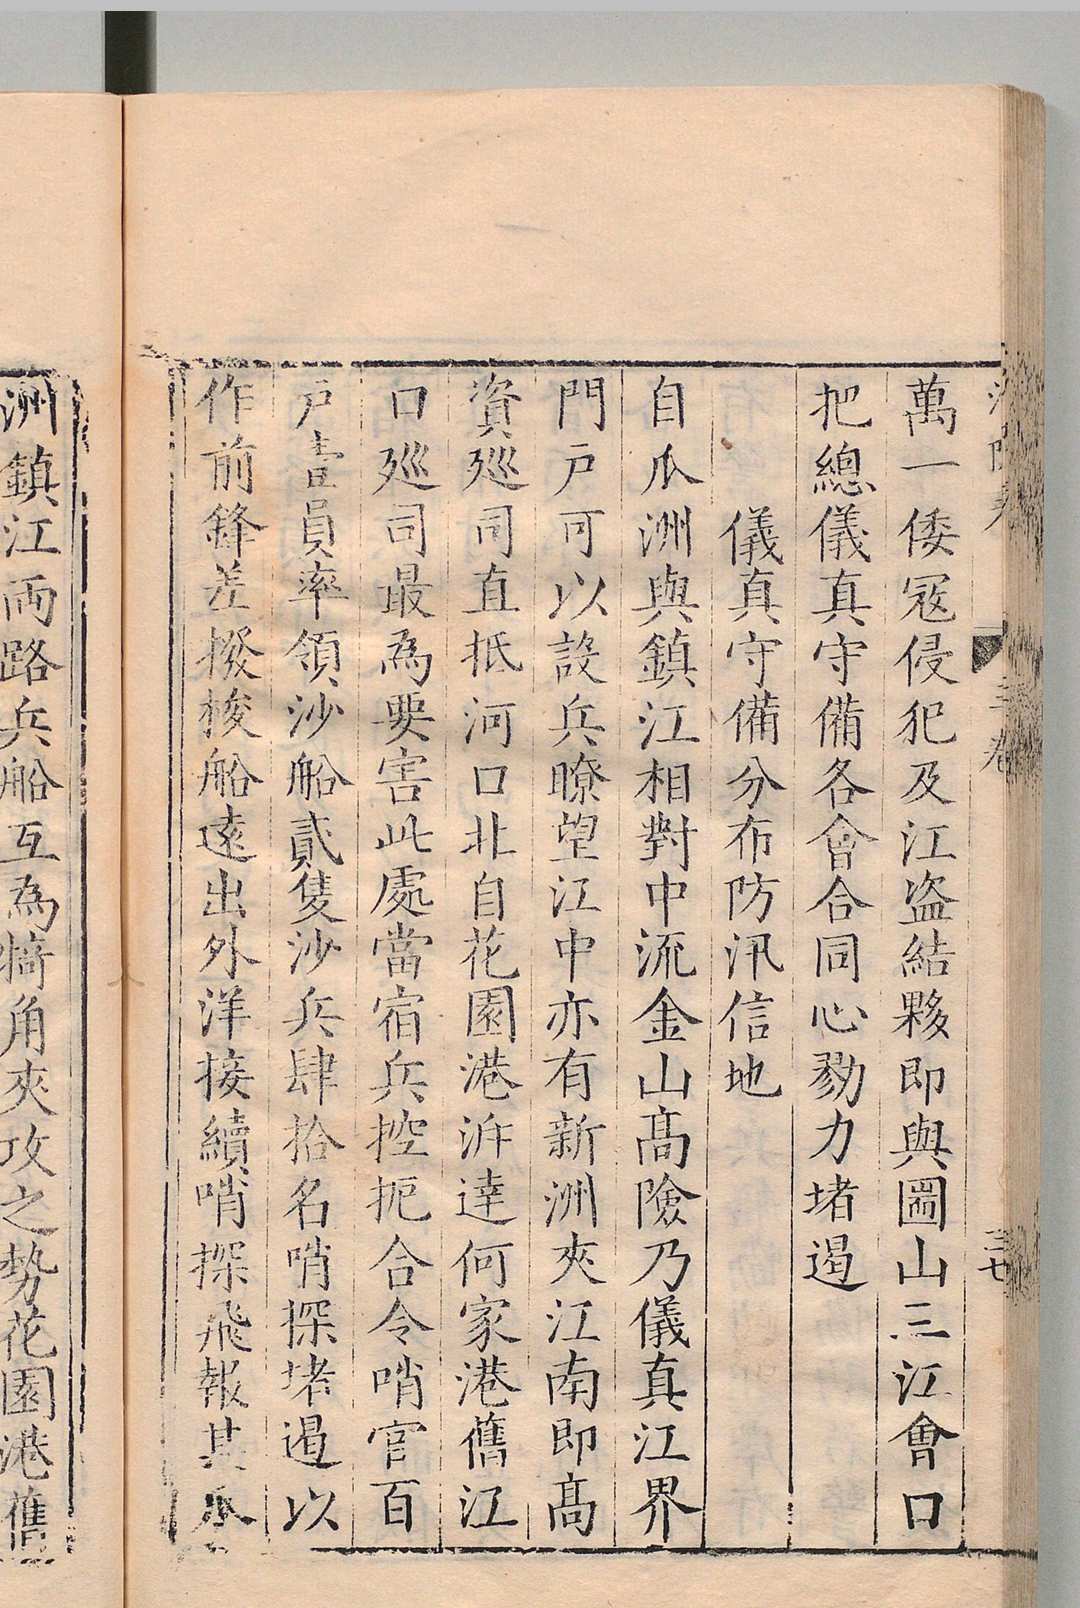 三卷
三七
萬一倭冦侵犯及江盗結夥即與圖山三江會口
把總儀真守備各會合同心勠力堵遏
儀真守備分布防汛信地
自瓜洲與鎮江相對中流金山髙險乃儀真江界
門戸可以設兵瞭望江中亦有新洲夾江南即髙
資廵司直抵河口北自花園港泝逹何家港舊江
口廵司最為要害此處當宿兵控扼合令哨官百
戸壹員率領沙船貳隻沙兵肆拾名哨探堵遏以
作前鋒差撥梭船遠出外洋接續哨探飛報其瓜
洲鎮江両路兵船互為犄角夾攻之勢花園港舊